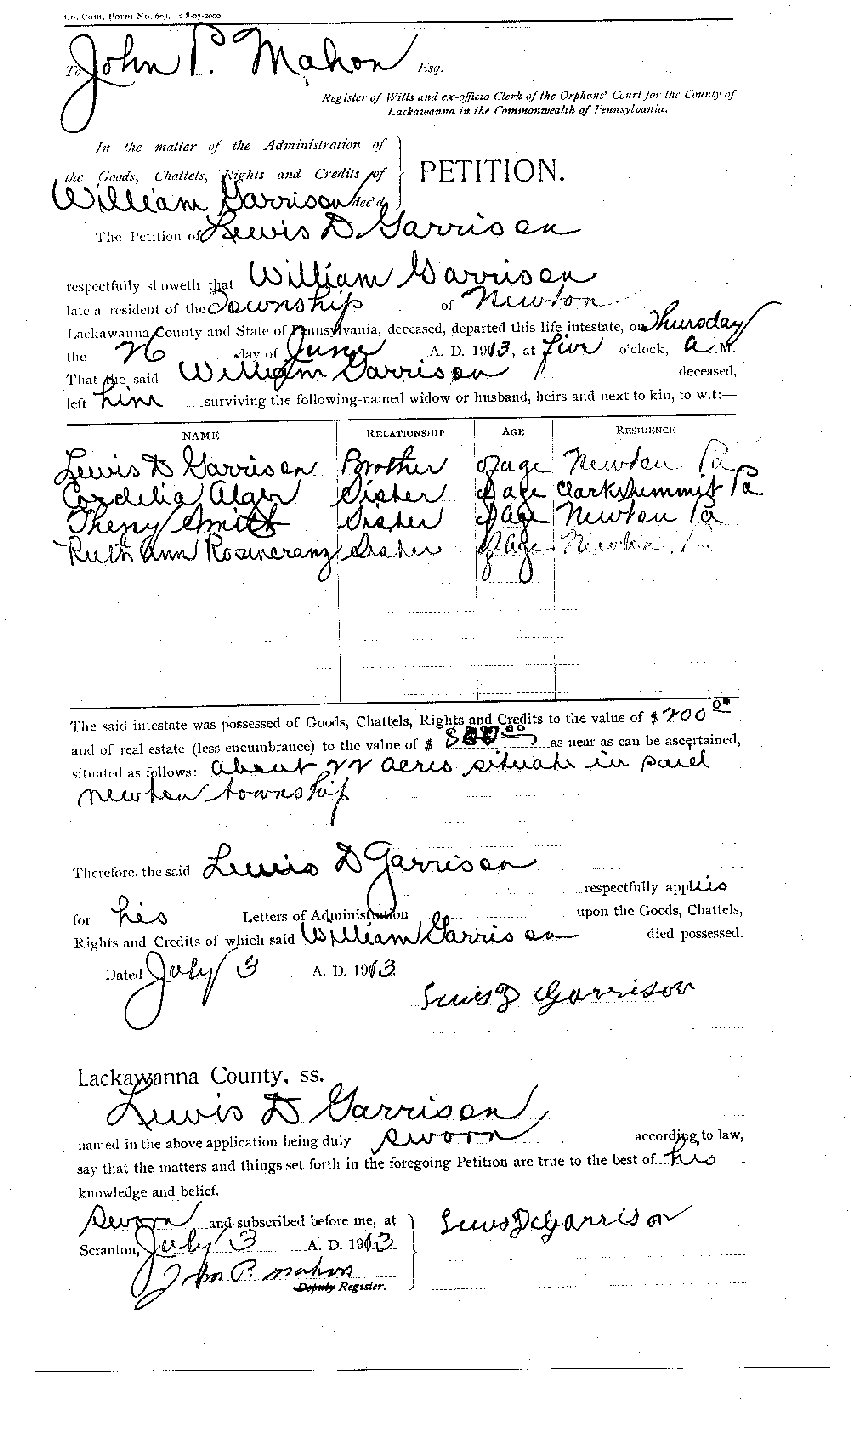 John P. Mahon
To Esq.
Register of Wills and ex-officio Clerk of the Orphans' Court for the County of
Lackawanna in the Commonwealth of Pennsylvania.
In the matter of the Administration of
the Goods, Chattels, Rights and Credits of
PETITION.
William Garrison dec'd
The Petition of Lewis D Garrison
respectfully showeth that William Garrison
late a resident of the Township of Newton
Lackawanna County and State of Pennsylvania, deceased, departed this life intestate, on Thursday
the 26 day of June A. D. 1913, at five o'clock, a M.
That the said William Garrison deceased,
left him surviving the following-named widow or husband, heirs and next to kin, to wit:—
NAME RELATIONSHIP AGE RESIDENCE
Lewis D Garrison Brother of age Newton Pa
Cordelia Alger Sister of age Clarks Summit Pa
Smith Sister of age Newton Pa
Ruth Ann Rosencranz Sister of age Newton Pa
The said intestate was possessed of Goods, Chattels, Rights and Credits to the value of $ 200 00
and of real estate (less encumbrance) to the value of $ as near as can be ascertained,
situated as follows: about 22 acres situate in said
Newton township
Therefore, the said Lewis D Garrison
respectfully applies
for his Letters of Administration upon the Goods, Chattels,
Rights and Credits of which said William Garrison died possessed.
Dated July 3 A. D. 1913
Lewis D Garrison
Lackawanna County, ss.
Lewis D Garrison
named in the above application being duly sworn according to law,
say that the matters and things set forth in the foregoing Petition are true to the best of his
knowledge and belief.
Sworn and subscribed before me, at
Lewis D Garrison
Scranton, July 3 A. D. 1913
John P. Mahon
Deputy Register.